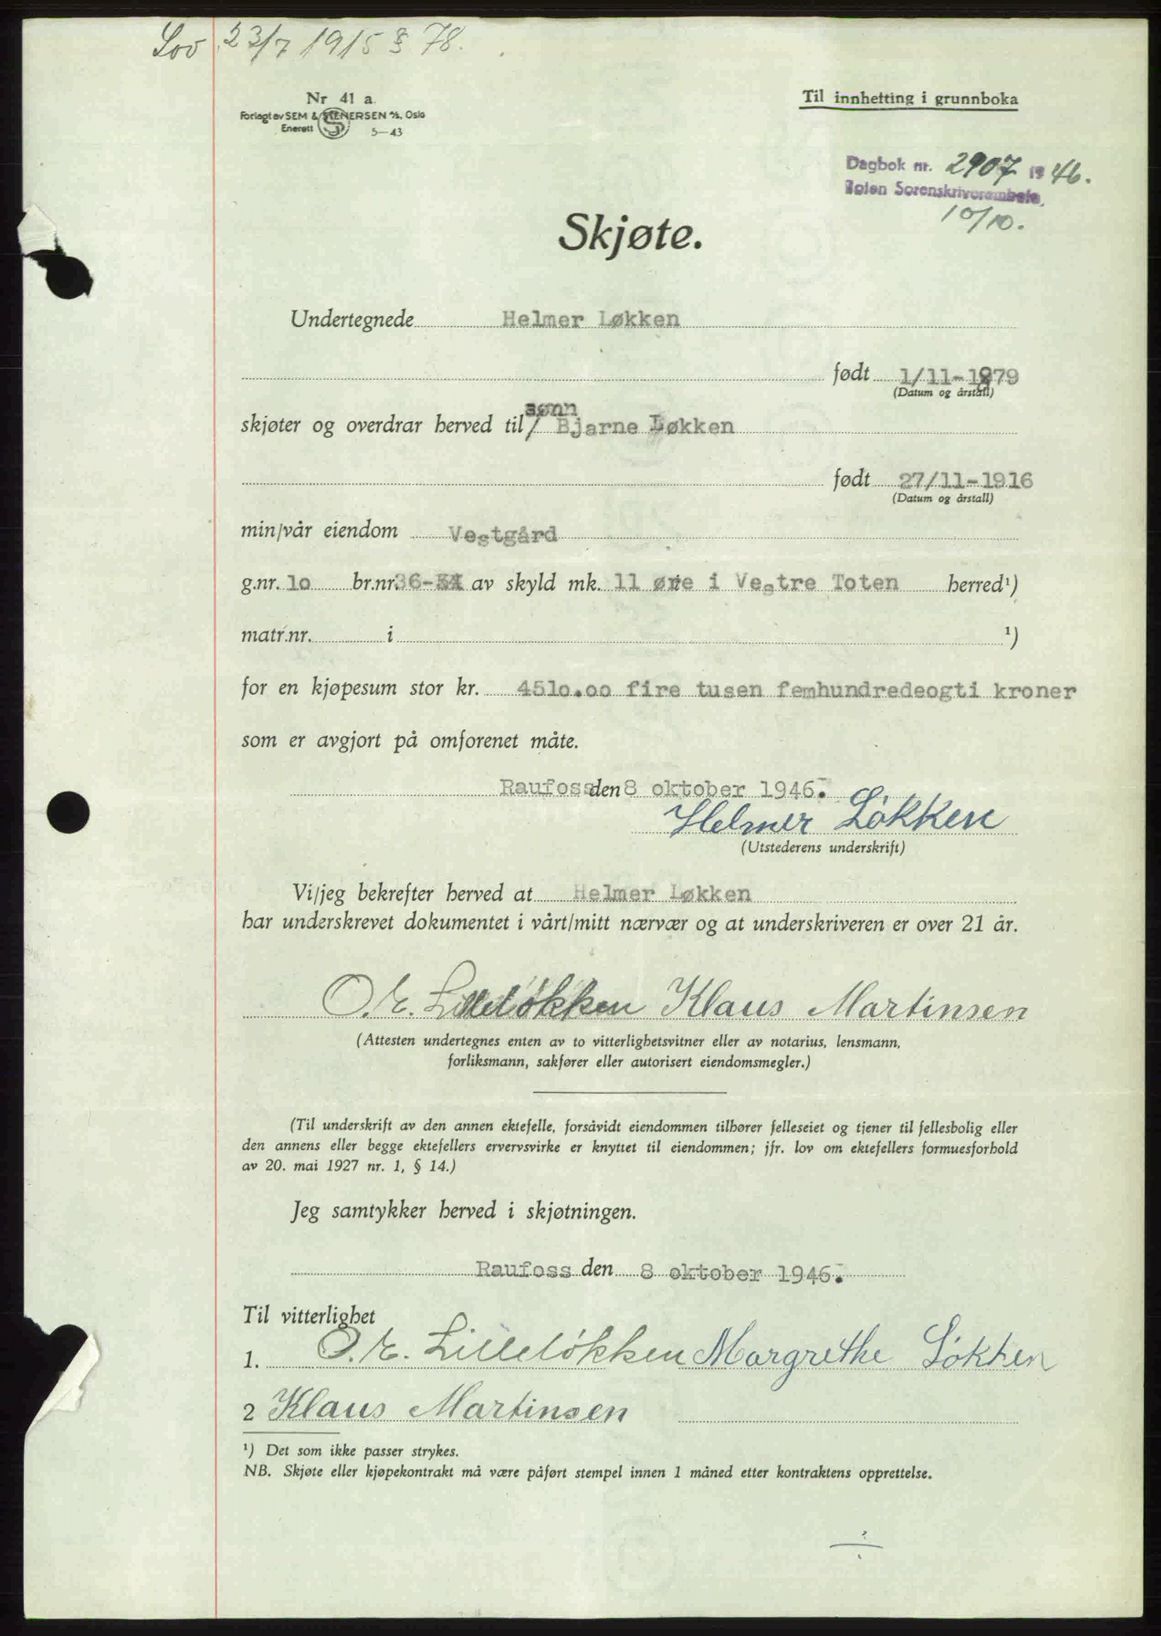 Lov 23/7 1915 § 78.
Nr 41 a
Forlagt av SEM & STENERSEN A/S, Oslo
Enerett 5—43
Til innhefting i grunnboka
Dagbok nr. 2907 19 46.
Toten Sorenskriverembete
10/10.
Skjøte.
Undertegnede Helmer Løkken
født 1/11-1879
(Datum og årstall)
sønn
skjøter og overdrar herved til / Bjarne Løkken
født 27/11-1916
(Datum og årstall)
min/vår eiendom Vestgård
g.nr. 10 br.nr. 36- av skyld mk. 11 øre i Vestre Toten herred¹)
matr.nr. i ¹)
for en kjøpesum stor kr. 4510.00 fire tusen femhundredeogti kroner
som er avgjort på omforenet måte.
Raufoss den 8 oktober 1946.
Helmer Løkken
(Utstederens underskrift)
Vi/jeg bekrefter herved at Helmer Løkken
har underskrevet dokumentet i vårt/mitt nærvær og at underskriveren er over 21 år.
O. E. Lilleløkken Klaus Martinsen
(Attesten undertegnes enten av to vitterlighetsvitner eller av notarius, lensmann,
forliksmann, sakfører eller autorisert eiendomsmegler.)
(Til underskrift av den annen ektefelle, forsåvidt eiendommen tilhører felleseiet og tjener til fellesbolig eller
den annens eller begge ektefellers ervervsvirke er knyttet til eiendommen; jfr. lov om ektefellers formuesforhold
av 20. mai 1927 nr. 1, § 14.)
Jeg samtykker herved i skjøtningen.
Raufoss den 8 oktober 1946.
Til vitterlighet
1. O. E. Lilleløkken Margrethe Løkken
2 Klaus Martinsen
¹) Det som ikke passer strykes.
NB. Skjøte eller kjøpekontrakt må være påført stempel innen 1 måned etter kontraktens opprettelse.